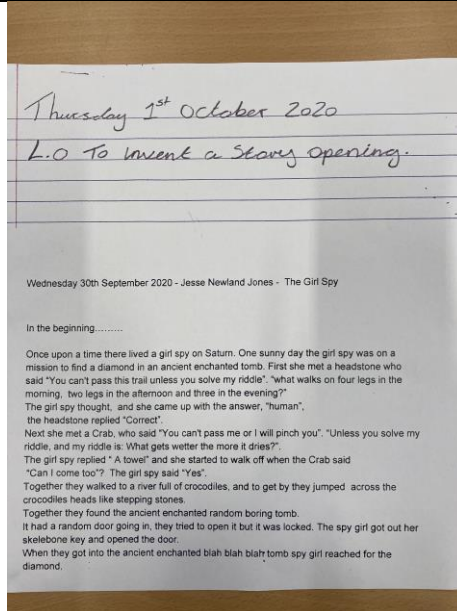 Thursday 1st October 2020
L.O To invent a Story opening.
Wednesday 30th September 2020 - Jesse Newland Jones - The Girl Spy
In the beginning.........
Once upon a time there lived a girl spy on Saturn. One sunny day the girl spy was on a
mission to find a diamond in an ancient enchanted tomb. First she met a headstone who
said "You can't pass this trail unless you solve my riddle". "what walks on four legs in the
morning, two legs in the afternoon and three in the evening?"
The girl spy thought, and she came up with the answer, "human",
the headstone replied "Correct".
Next she met a Crab, who said "You can't pass me or I will pinch you". "Unless you solve my
riddle, and my riddle is: What gets wetter the more it dries?".
The girl spy replied " A towel" and she started to walk off when the Crab said
"Can I come too"? The girl spy said "Yes".
Together they walked to a river full of crocodiles, and to get by they jumped across the
crocodiles heads like stepping stones.
Together they found the ancient enchanted random boring tomb.
It had a random door going in, they tried to open it but it was locked. The spy girl got out her
skelebone key and opened the door.
When they got into the ancient enchanted blah blah blah tomb spy girl reached for the
diamond.